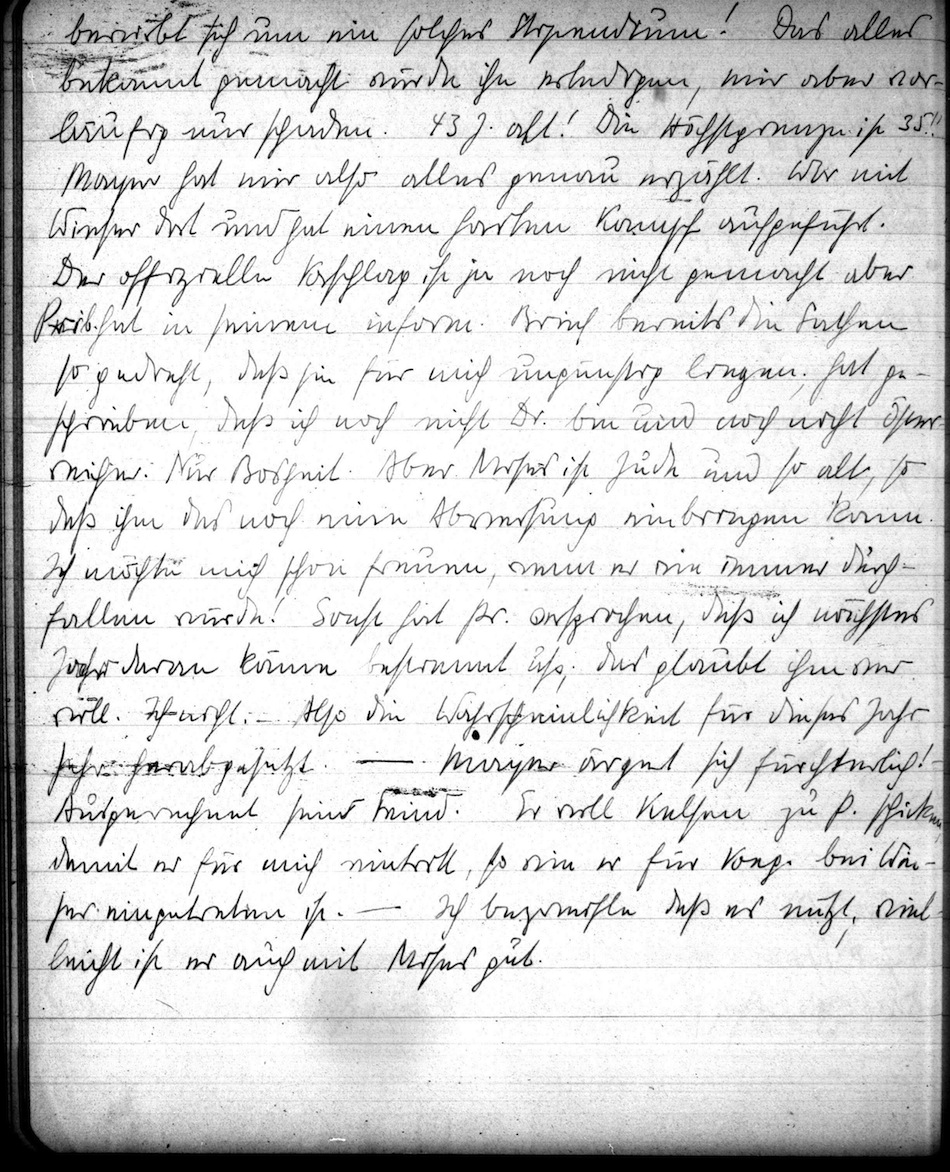 bewirbt sich um ein solches Stipendium! Das alles
bekannt gemacht würde ihn erledigen, mir aber vor-
läufig nur schaden. 43 J. alt! Die Höchstgrenze ist 35!!
Mayer hat mir also alles genau erzählt. War mit
Wieser dort und hat einen harten Kampf aufgeführt.
Der offizielle Vorschlag ist ja noch nicht gemacht aber
Prib. hat in seinem inform. Brief bereits die Sachen
so gedreht, daß sie für mich ungünstig liegen, hat ge-
schrieben, daß ich noch nicht Dr. bin und noch nicht Öster-
reicher. Nur Bosheit. Aber Moses ist Jude und so alt, so
daß ihm das noch eine Abweisung einbringen kann.
Ich möchte mich schon freuen, wenn er wie immer durch-
fallen würde! Sonst hat Pr. versprochen, daß ich nächstes
Jahr daran käme bestimmt usf. das glaubt ihm wer
will. Ich nicht. – Also die Wahrscheinlichkeit für dieses Jahr
sehr herabgesetzt. — Mayer ärgert sich fürchterlich!
Ausgerechnet sein Feind. Er will Kelsen zu P. schicken,
damit er für mich eintritt, so wie er für Voeg. bei Wie-
ser eingetreten ist. — Ich bezweifle daß es nützt, viel-
leicht ist er auch mit Moses gut.